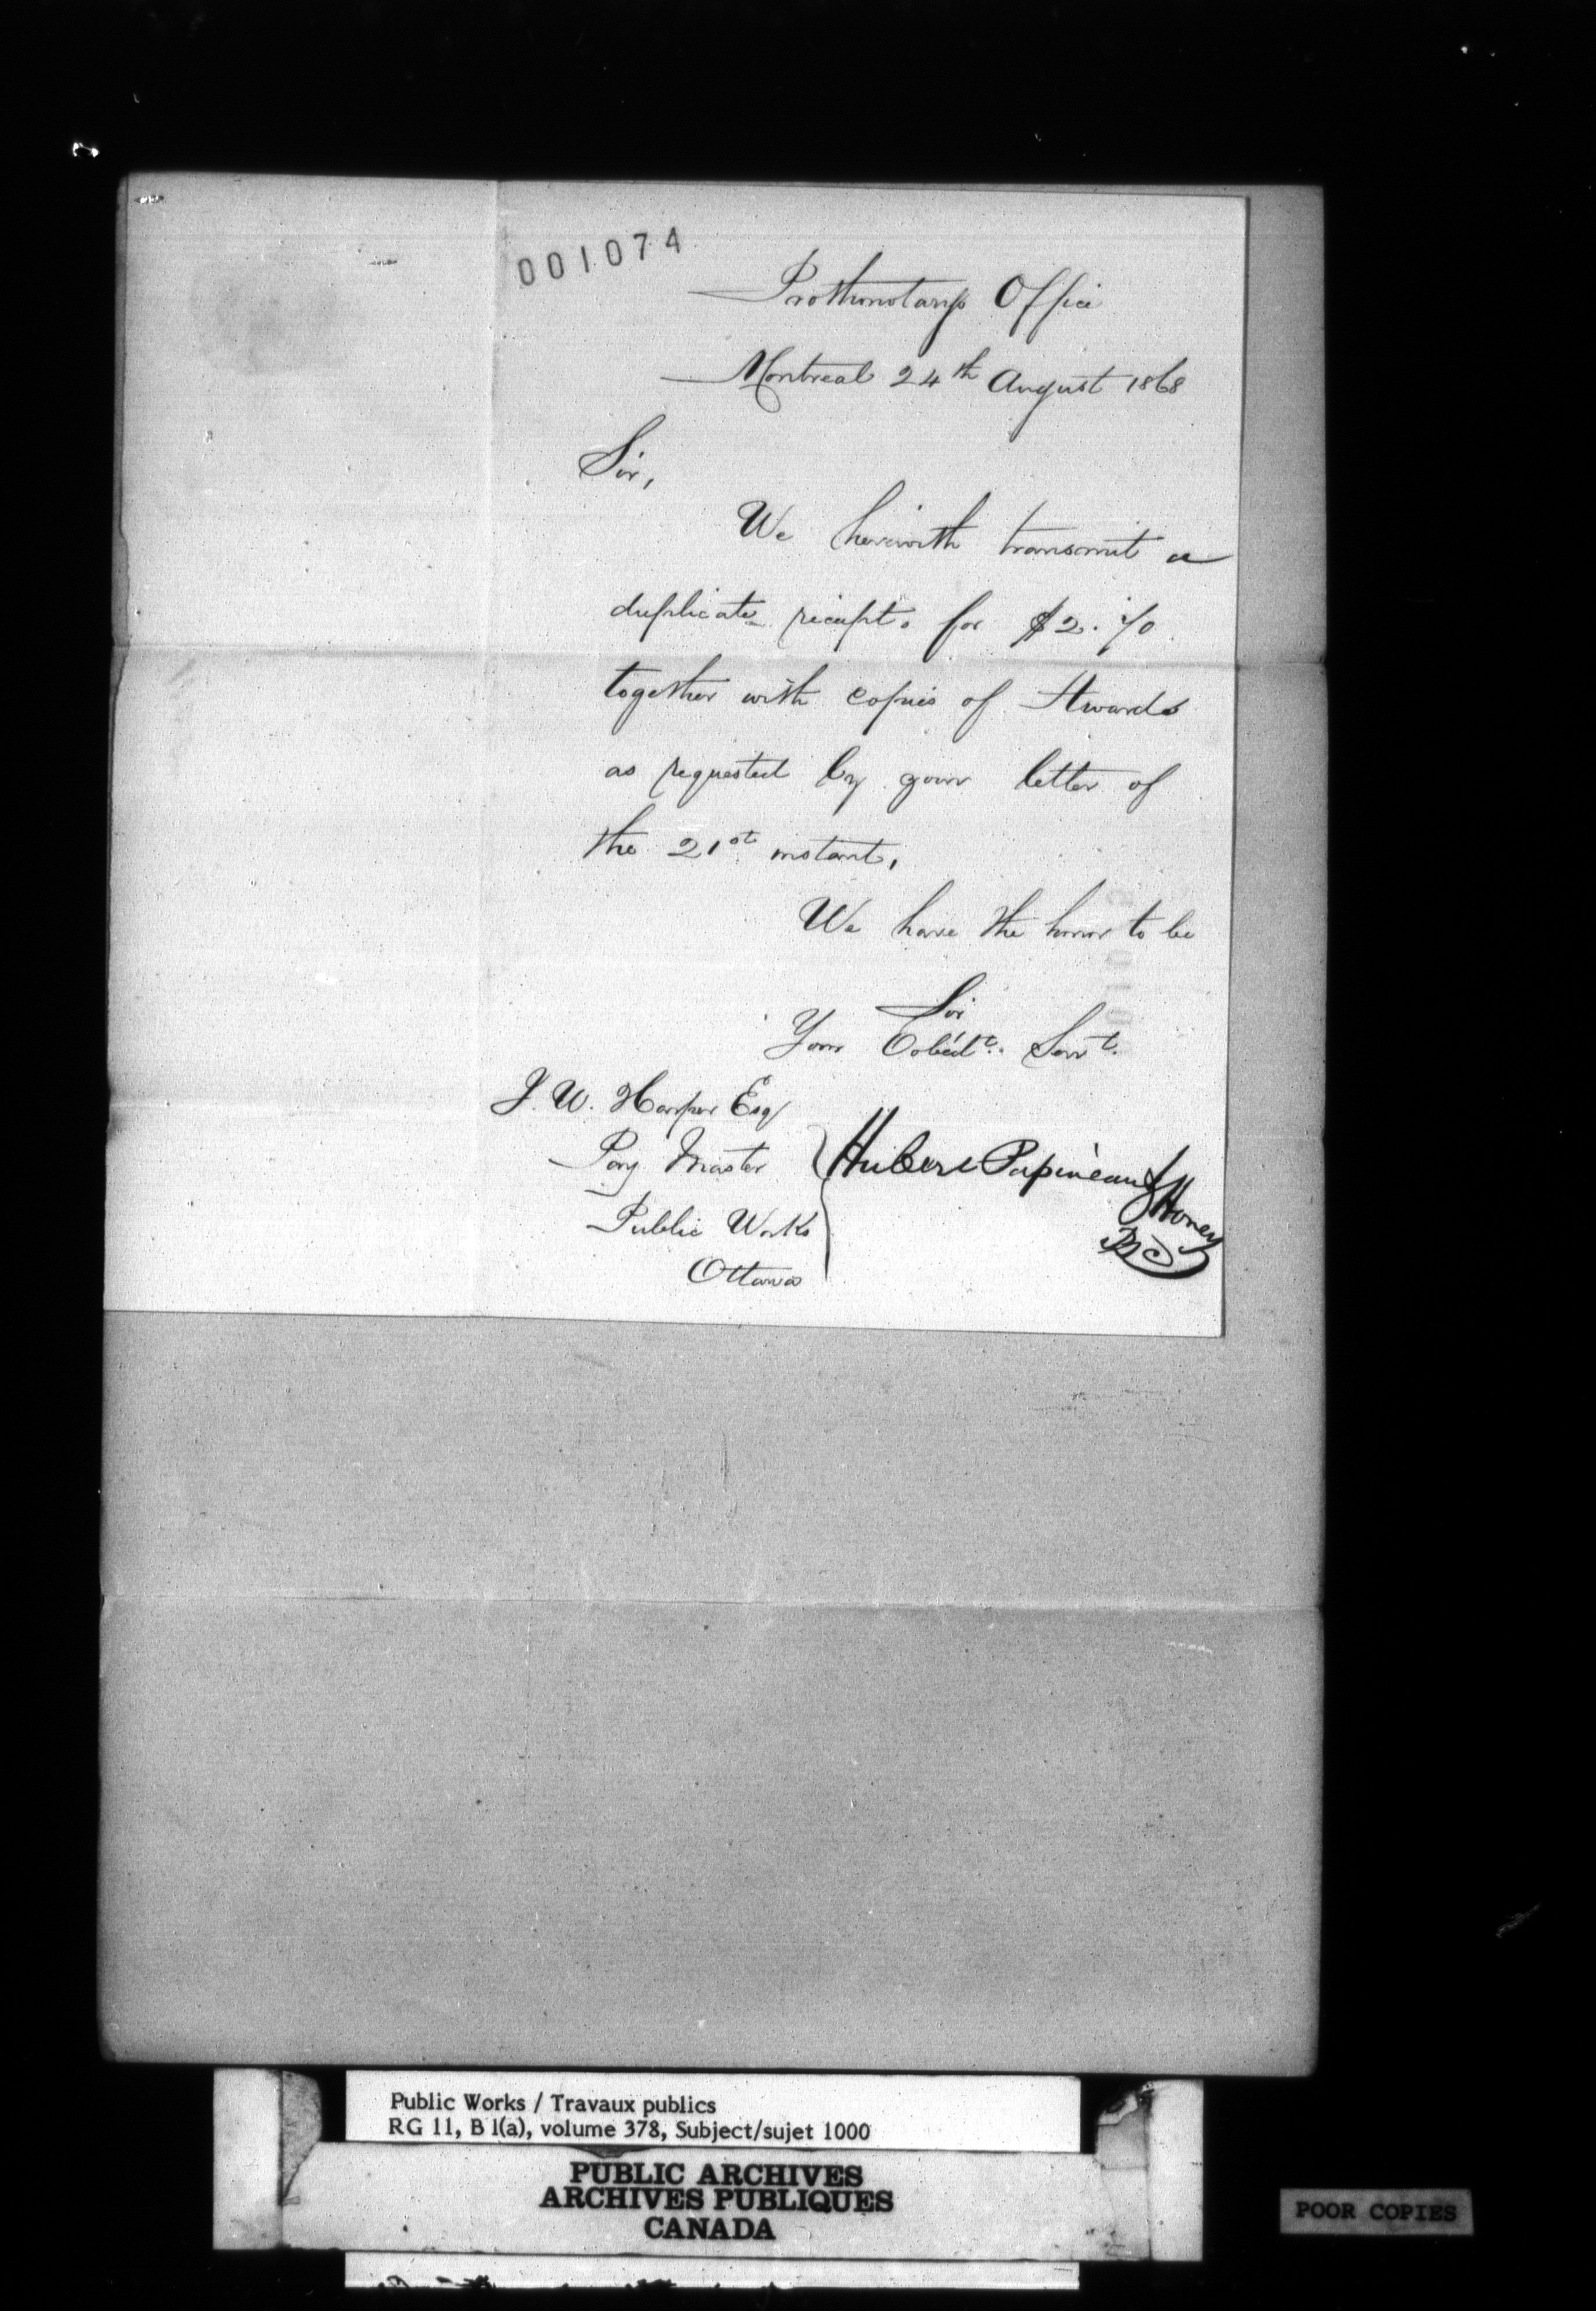 001074
Prothonotarys Office
Montreal 24th August 1868
Sir,
We herewith transmit a
duplicate receipt. for $2.70
together with copies of Awards
as requested by your letter of
the 21st instant,
We have the honor to be
Sir
Your Oobedt. Servt.
J. W. Harper Esq
Pay Master
Hubert Papineau & Honey
Public Works
Ottawa
Public Works / Travaux publics
RG 11, B 1(a), volume 378, Subject/sujet 1000
PUBLIC ARCHIVES
ARCHIVES PUBLIQUES
CANADA
POOR COPIES